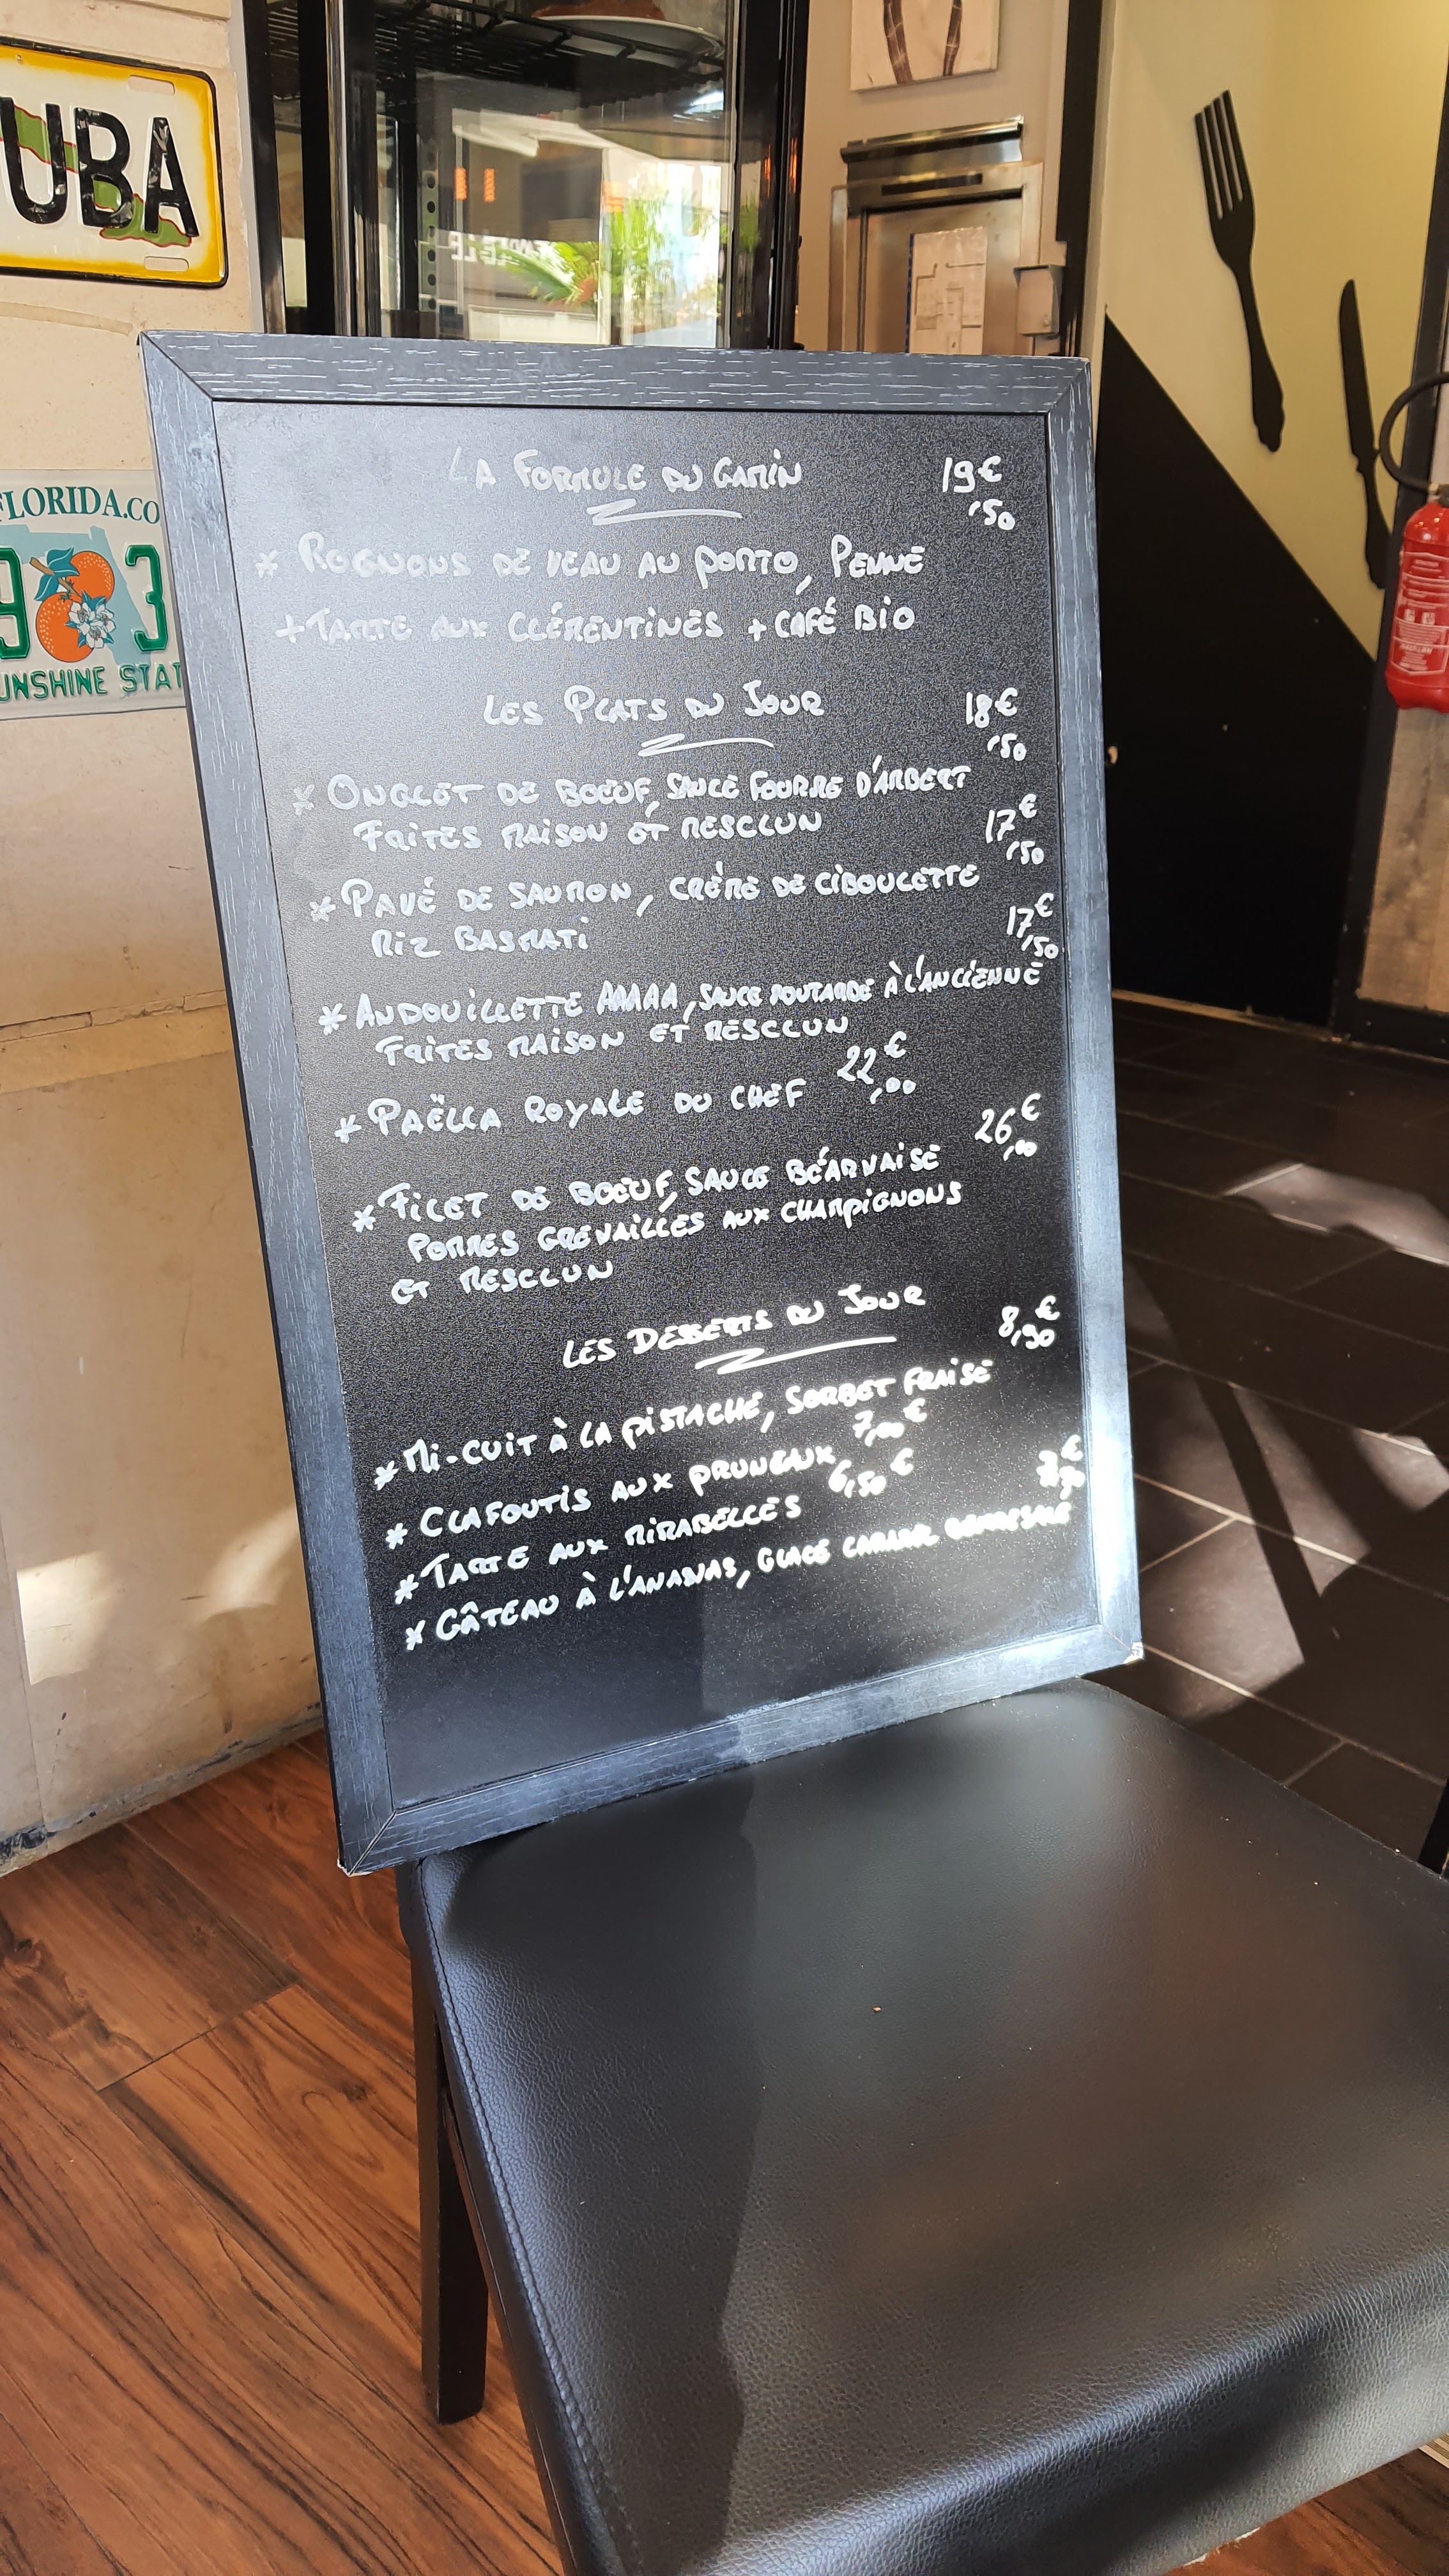 UBA
FLORIDA.CO
9 3
UNSHINE STAT
LA FORMULE DU GAMIN 19€,50
* ROGNONS DE VEAU AU PORTO, PENNE
+ TARTE AUX CLÉMENTINES + CAFÉ BIO
LES PLATS DU JOUR 18€,50
* ONGLET DE BOEUF, SAUCE FOURME D'AMBERT
FRITES MAISON ET MESCLUN 17€,50
* PAVÉ DE SAUMON, CRÈME DE CIBOULETTE
RIZ BASMATI 17€,50
* ANDOUILLETTE AAAAA, SAUCE MOUTARDE À L'ANCIENNE
FRITES MAISON ET MESCLUN
* PAËLLA ROYALE DU CHEF 22€,00
26€,00
* FILET DE BOEUF, SAUCE BÉARNAISE
POMMES GRENAILLES AUX CHAMPIGNONS
ET MESCLUN
LES DESSERTS DU JOUR 8,90€
* MI-CUIT À LA PISTACHE, SORBET FRAISE
* CLAFOUTIS AUX PRUNEAUX 7,00€
* TARTE AUX MIRABELLES 6,50€
* GÂTEAU À L'ANANAS, GLACE CARAMEL